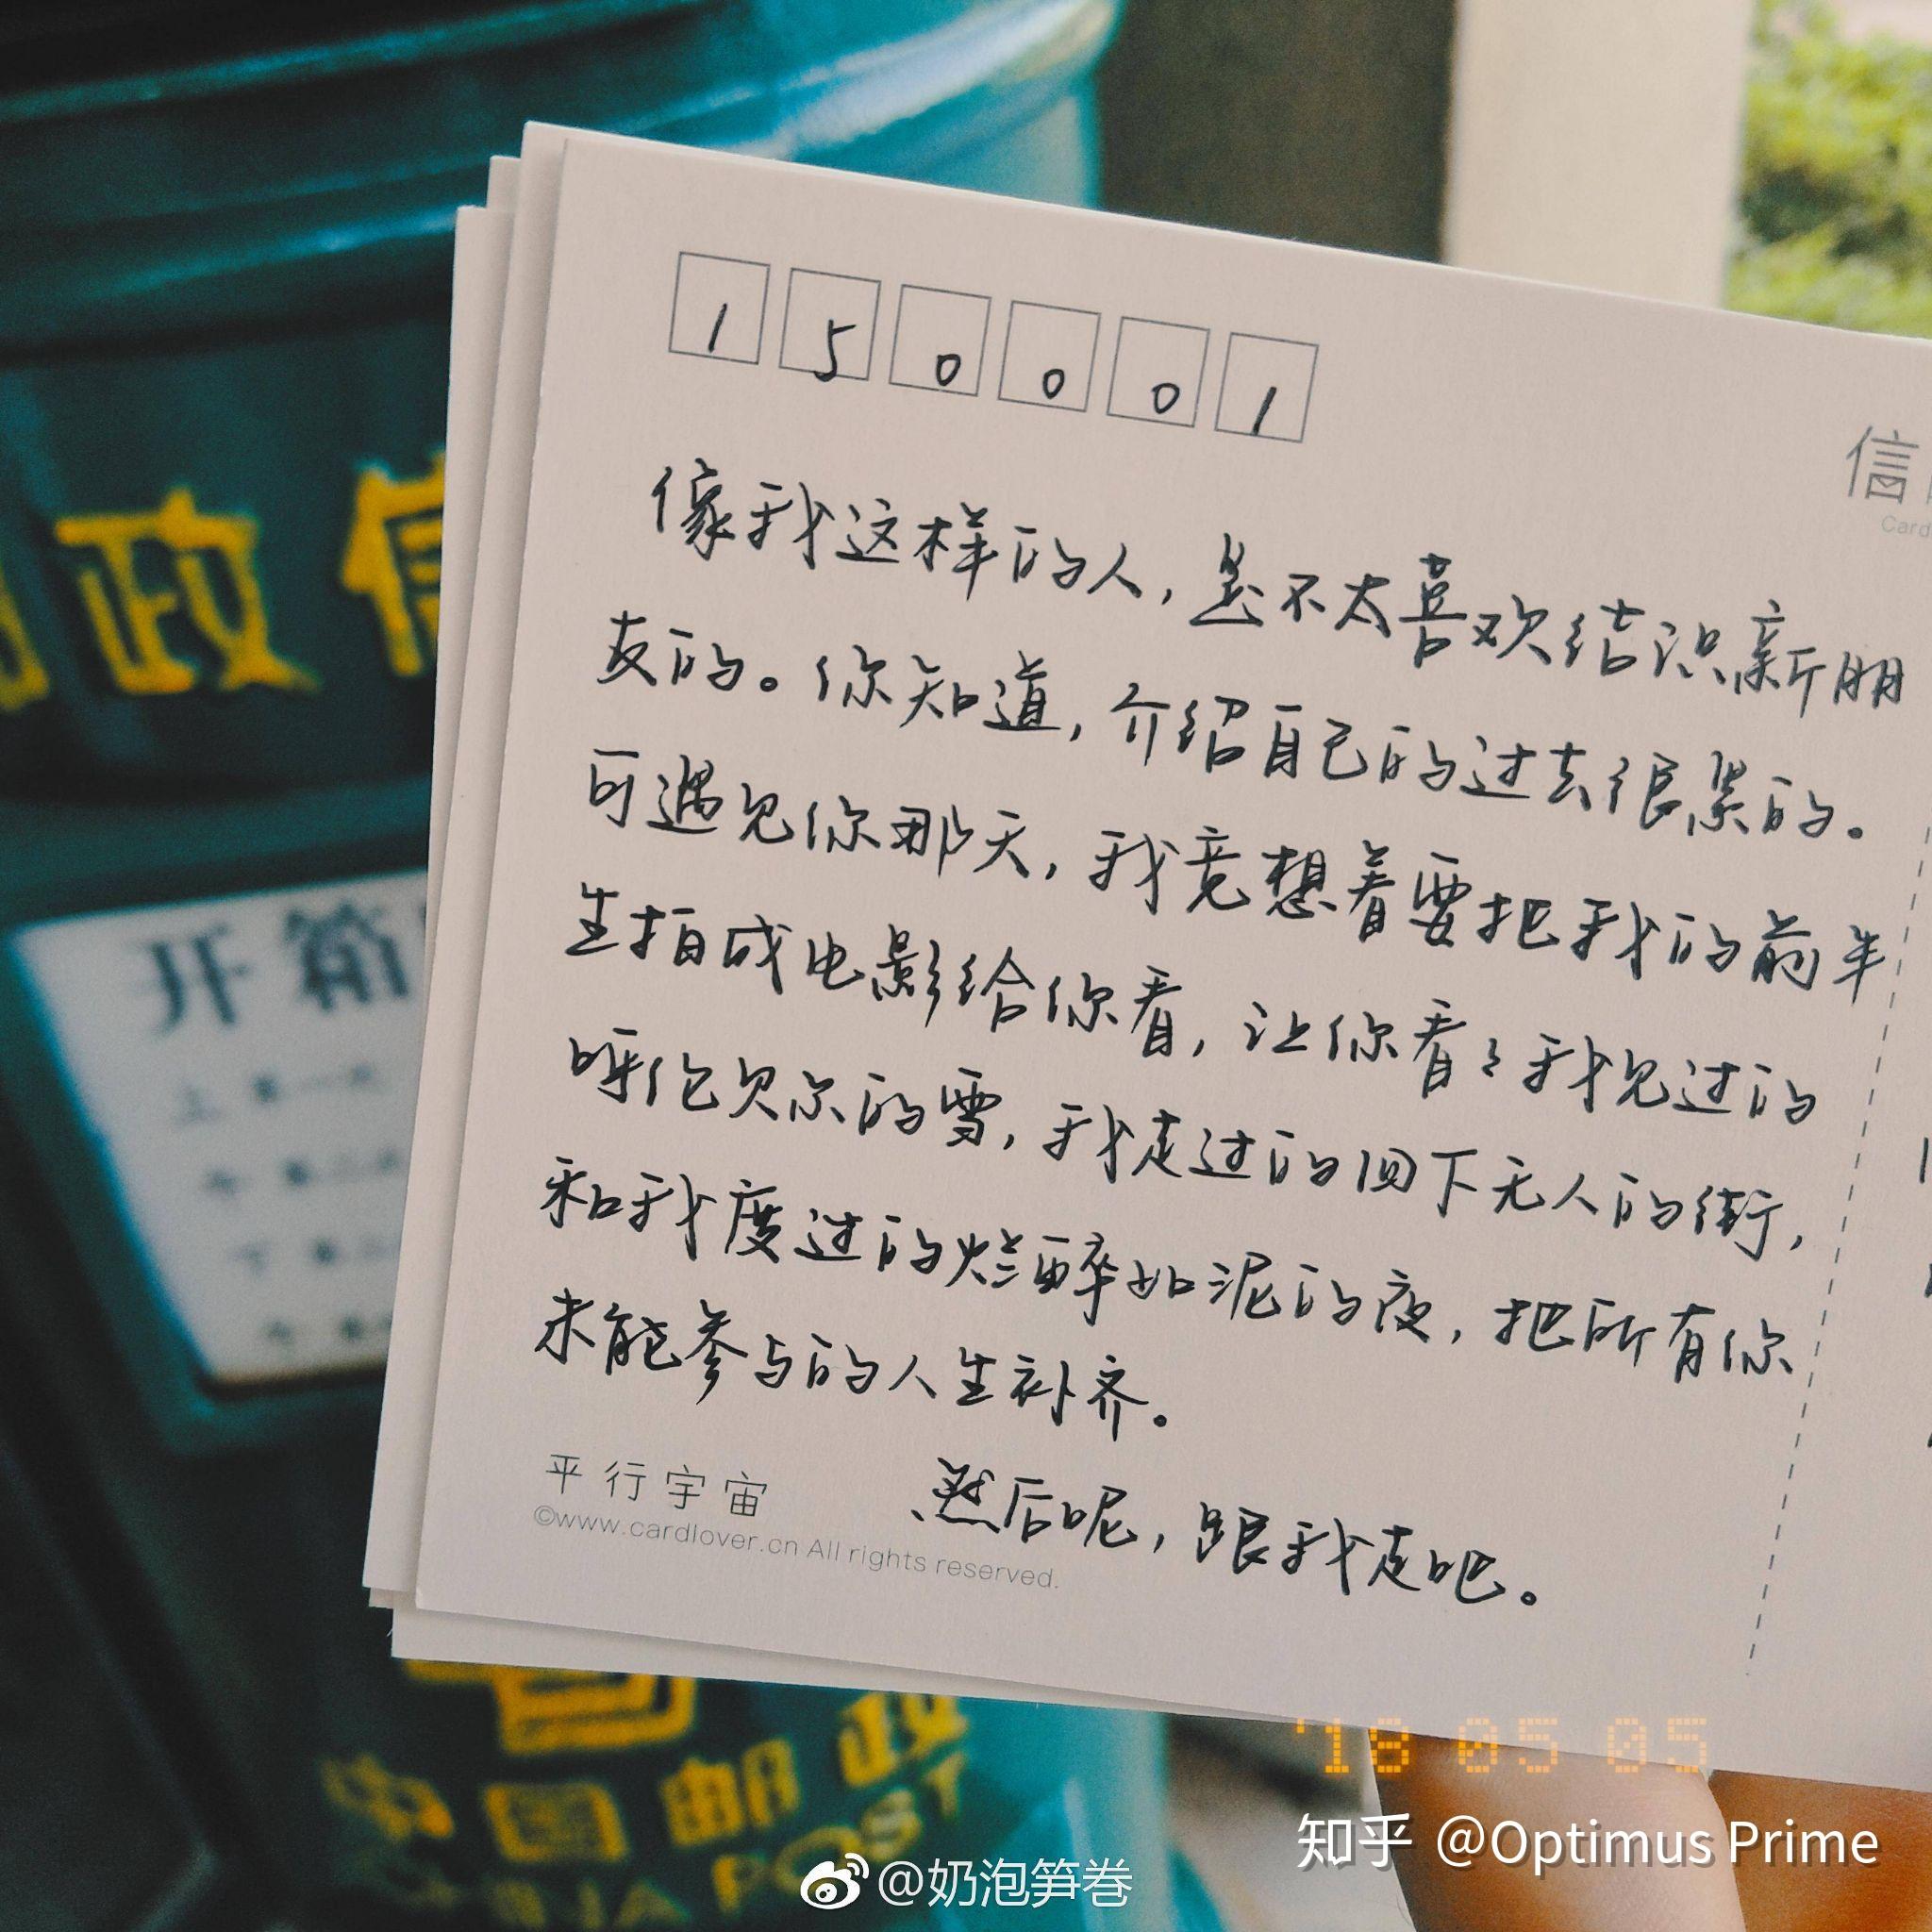 150001
信
Card
像我这样的人，是不太喜欢结识新朋
友的。你知道，介绍自己的过去很累的。
可遇见你那天，我竟想着要把我的前半
生拍成电影给你看，让你看々我见过的
呼伦贝尔的雪，我走过的四下无人的街，
和我度过的烂醉如泥的夜，把所有你
未能参与的人生补齐。
然后呢，跟我走吧。
平行宇宙
©www.cardlover.cn All rights reserved.
政信
开箱
中国邮政
CHINA POST
'18 05 05
知乎 @Optimus Prime
@奶泡笋卷